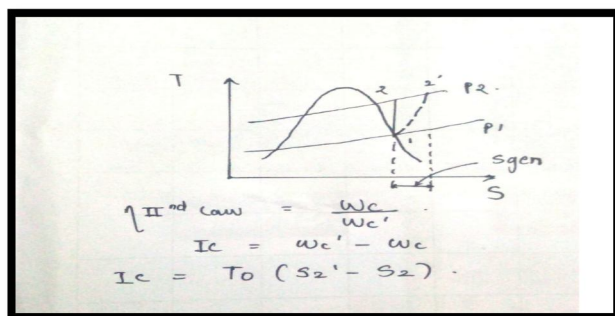 T
2 2' P2.
P1
1
Sgen
S
η IInd Law = Wc / Wc' .
Ic = Wc' - Wc
Ic = To (S2' - S2) .